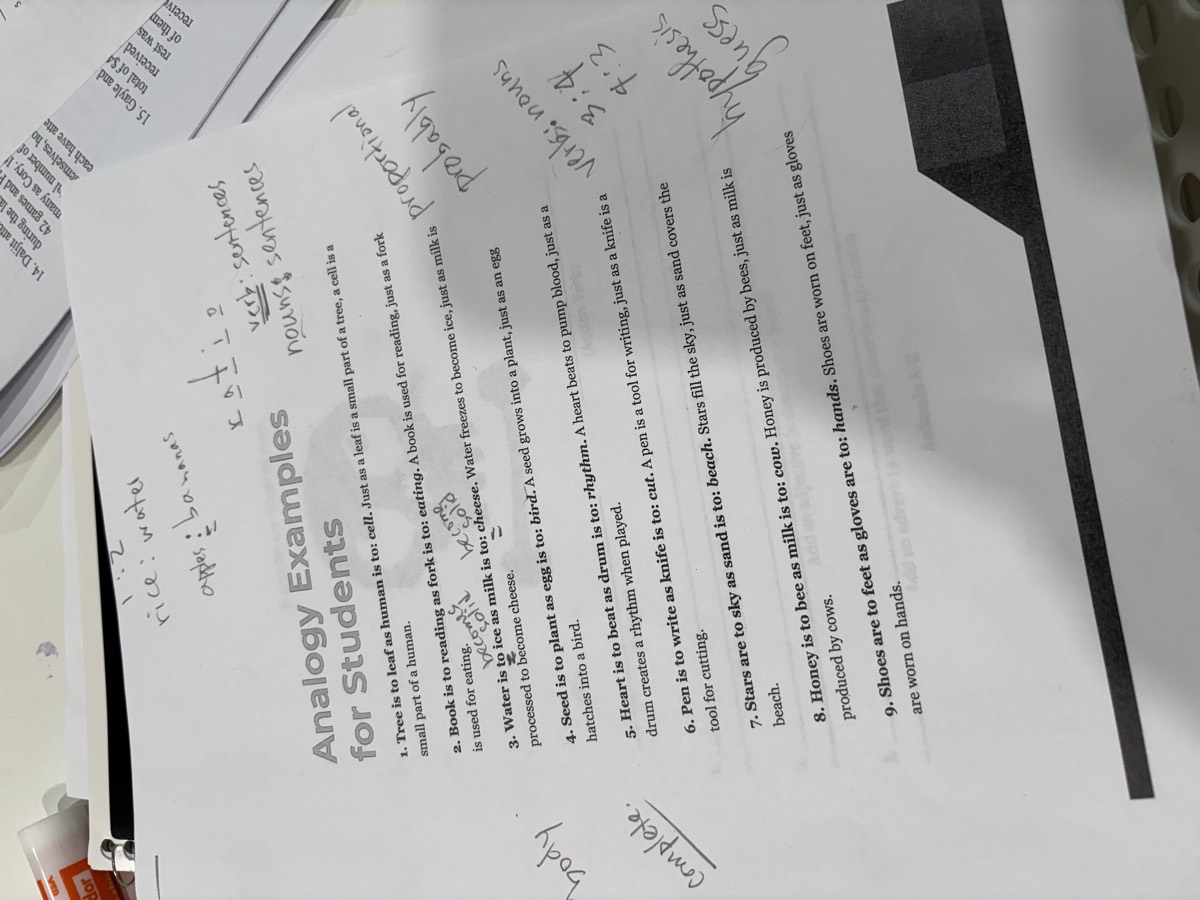 1:2
rice: water
apples: bananas
ratio
verb: sentences
nouns: sentences
Analogy Examples
for Students
proportional
probably
1. Tree is to leaf as human is to: cell. Just as a leaf is a small part of a tree, a cell is a
small part of a human.
2. Book is to reading as fork is to: eating. A book is used for reading, just as a fork
is used for eating.
becomes solid
become solid
3. Water is to ice as milk is to: cheese. Water freezes to become ice, just as milk is
processed to become cheese.
verbs: nouns
3:4
4:3
4. Seed is to plant as egg is to: bird. A seed grows into a plant, just as an egg
hatches into a bird.
5. Heart is to beat as drum is to: rhythm. A heart beats to pump blood, just as a
drum creates a rhythm when played.
hypothesis
guess
6. Pen is to write as knife is to: cut. A pen is a tool for writing, just as a knife is a
tool for cutting.
7. Stars are to sky as sand is to: beach. Stars fill the sky, just as sand covers the
beach.
8. Honey is to bee as milk is to: cow. Honey is produced by bees, just as milk is
produced by cows.
9. Shoes are to feet as gloves are to: hands. Shoes are worn on feet, just as gloves
are worn on hands.
body
complete.
14. Daljit
during the
42 games and
many as Cory,
number of
each have
15. Gayle and
total of $4
received
rest was
of them